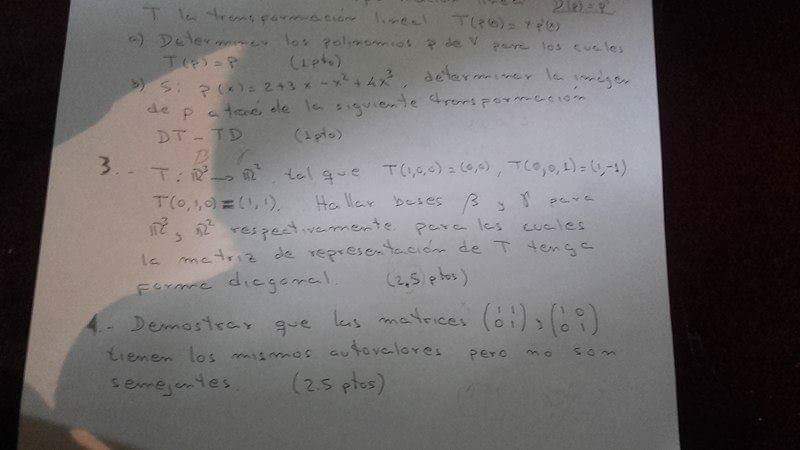 D(p)=p'
T la transformación lineal T(p(x))=x p(x)
a) Determinar los polinomios p de V para los cuales
T(p)=p (1pto)
b) Si p(x)=2+3x-x²+4x³, determinar la imágen
de p a través de la siguiente transformación
DT-TD (1pto)
β γ
3.- T: ℝ³→ℝ² tal que T(1,0,0)=(0,0), T(0,0,1)=(1,-1)
T(0,1,0)=(1,1). Hallar bases β y γ para
ℝ³ y ℝ² respectivamente para las cuales
la matriz de representación de T tenga
forma diagonal. (2,5 ptos)
4.- Demostrar que las matrices (1 1; 0 1) y (1 0; 0 1)
tienen los mismos autovalores pero no son
semejantes. (2.5 ptos)